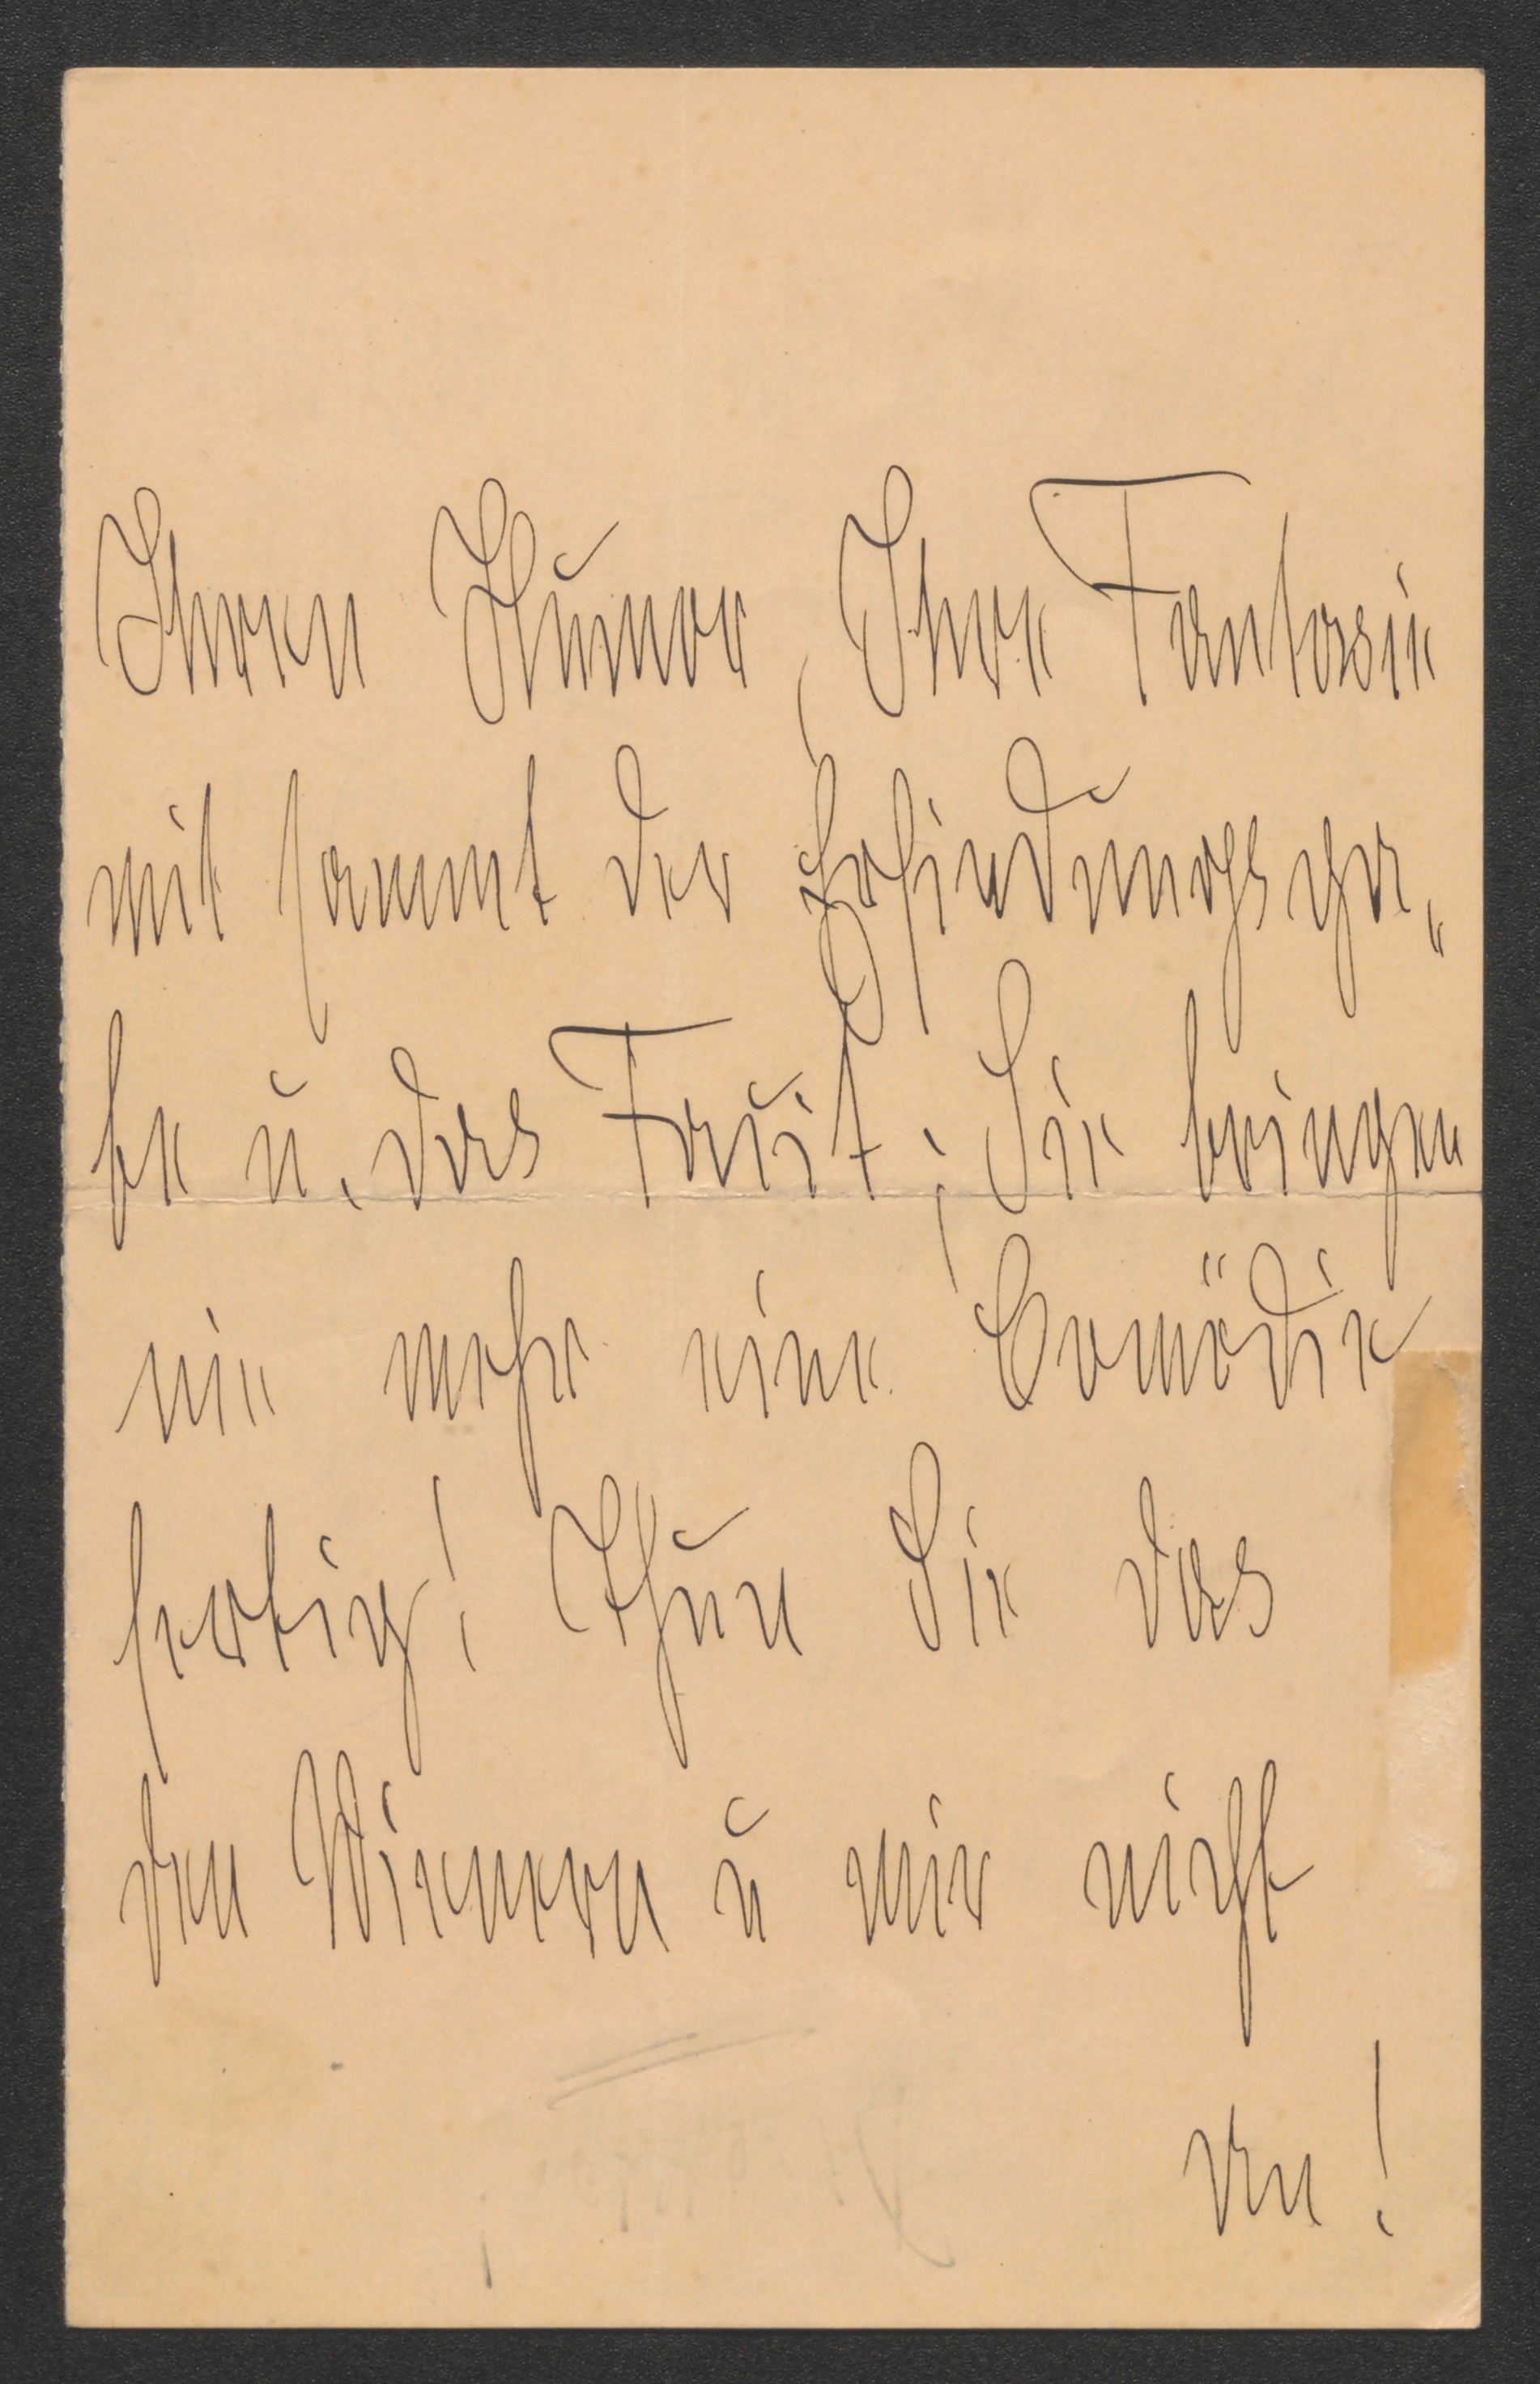 Ihren Humor, Ihre Fantasie
mit sammt der Erfindungsga„
be u. das Fait; Sie bringen
nie mehr eine Comödie
fertig! Thun Sie das
den Wienern u mir nicht
an!